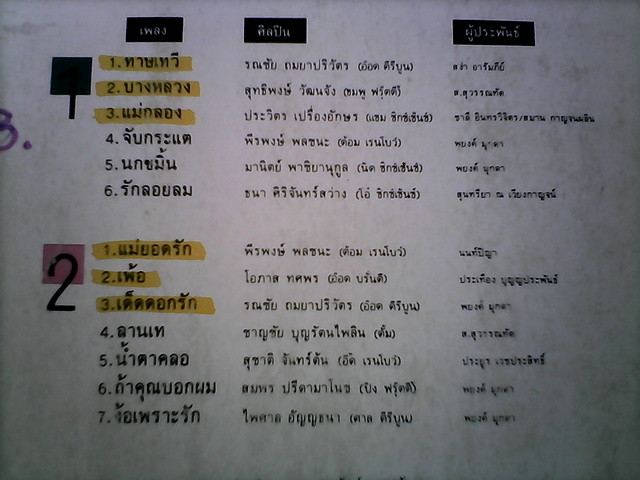 เพลง ศิลปิน ผู้ประพันธ์
1
1.ทาษเทวี รณชัย ถมยาปริวัตร (อ๊อด คีรีบูน) สง่า อารัมภีย์
2.บางหลวง สุทธิพงษ์ วัฒนจัง (ชมพู ฟรุ๊ตตี้) ส.สุวรรณทัต
3.แม่กลอง ประวิตร เปรื่องอักษร (แซม ซิกซ์เซ้นซ์) ชาลี อินทรวิจิตร/สมาน กาญจนผลิน
3.
4.จับกระแต พีรพงษ์ พลชนะ (ต้อม เรนโบว์) พยงค์ มุกดา
5.นกขมิ้น มานิตย์ พาชิยานุกูล (นิด ซิกซ์เซ้นซ์) พยงค์ มุกดา
6.รักลอยลม ธนา ศิริจันทร์สว่าง (โอ๋ ซิกซ์เซ้นซ์) สุนทรียา ณ เวียงกาญจน์
2
1.แม่ยอดรัก พีรพงษ์ พลชนะ (ต้อม เรนโบว์) นนท์ปัญญา
2.เพ้อ โอภาส ทศพร (อ๊อด บรั่นดี) ประเทือง บุญญประพันธ์
3.เด็ดดอกรัก รณชัย ถมยาปริวัตร (อ๊อด คีรีบูน) พยงค์ มุกดา
4.ลานเท ชาญชัย บุญรัตนไพลิน (ตั้ม) ส.สุวรรณทัต
5.น้ำตาคลอ สุชาติ จันทร์ต้น (อี๊ด เรนโบว์) ประยูร เวชประสิทธิ์
6.ถ้าคุณบอกผม สมพร ปรีดามาโนช (ปิง ฟรุ๊ตตี้) พยงค์ มุกดา
7.ง้อเพราะรัก ไพศาล อัญญธนา (ศาล คีรีบูน) พยงค์ มุกดา